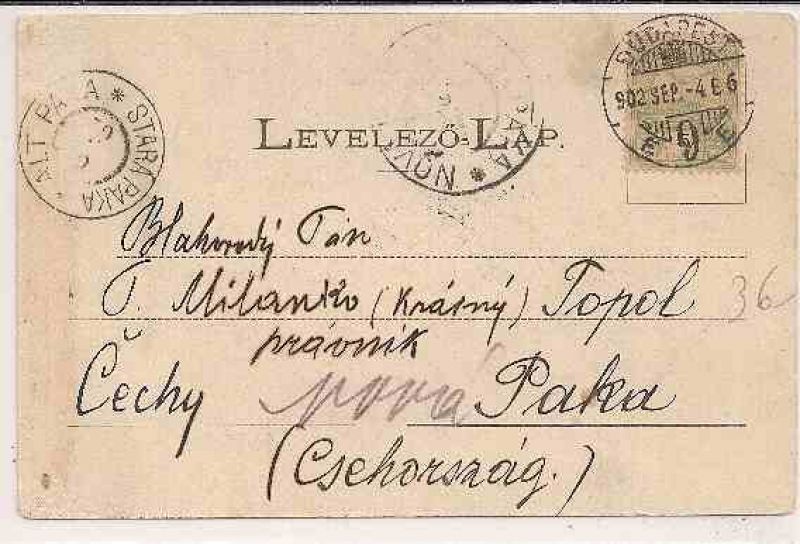 BUDAPEST
902 SEP.-4 E 6
ALT PAKA * STARA PAKA
LEVELEZŐ-LAP.
PAKA * NOVÁ
Blahorodý Pán
P. Milanko (Krásný) Topol
36
právník
Čechy nová Paka
(Csehország.)